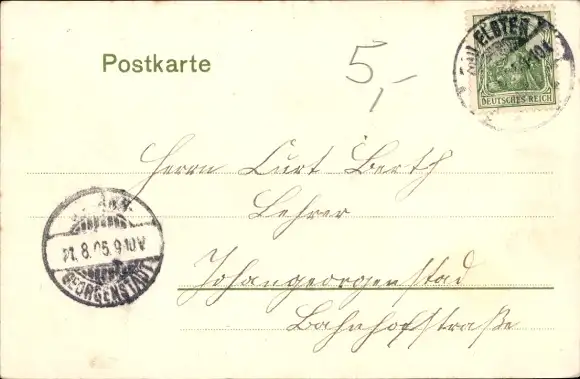 Postkarte
5,-
ELSTER
DEUTSCHES REICH
Herrn Curt Berth
Lehrer
Johangeorgenstad
Bahnhofstraße
8.05.9-10V
GEORGENSTADT